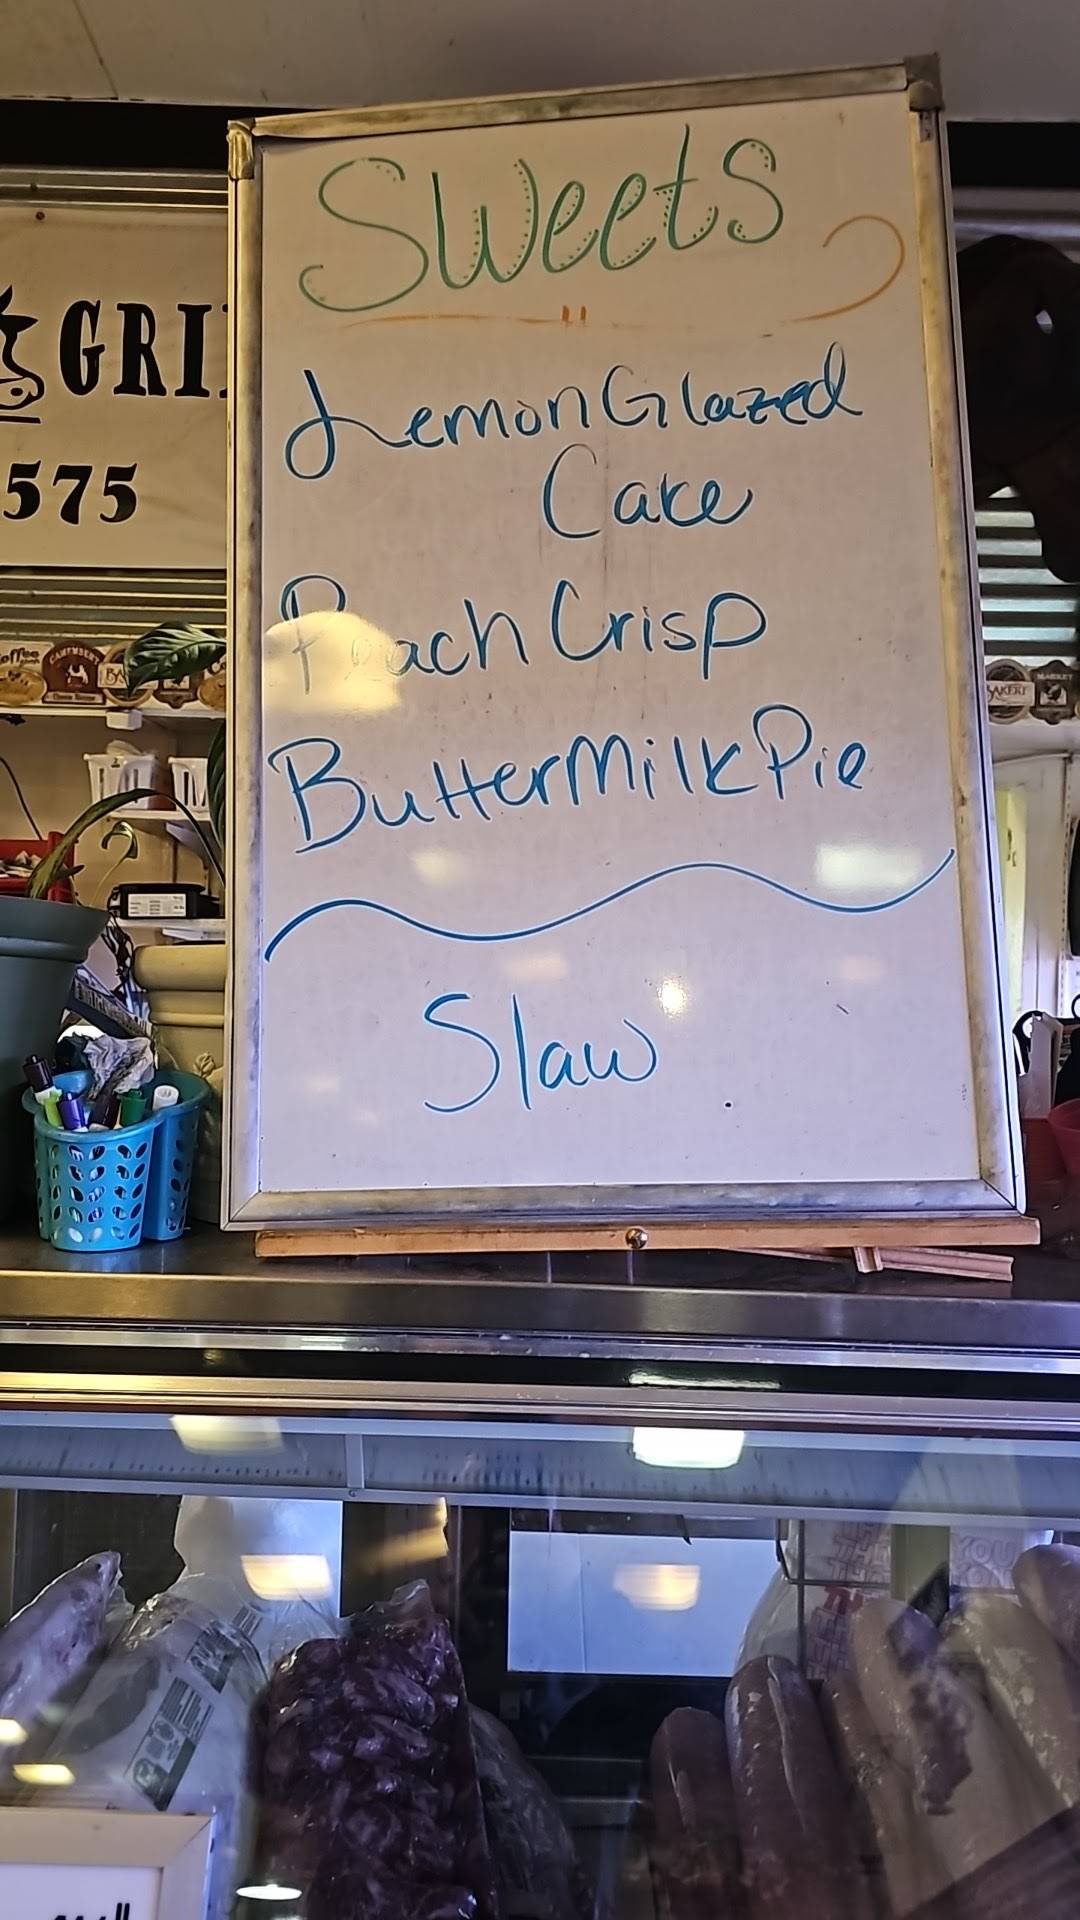 Sweets
GRI
575
Lemon Glazed
Cake
Peach Crisp
ButterMilk Pie
Slaw
Coffee
CAMEMBERT
BAKERY
MARKET
YOU